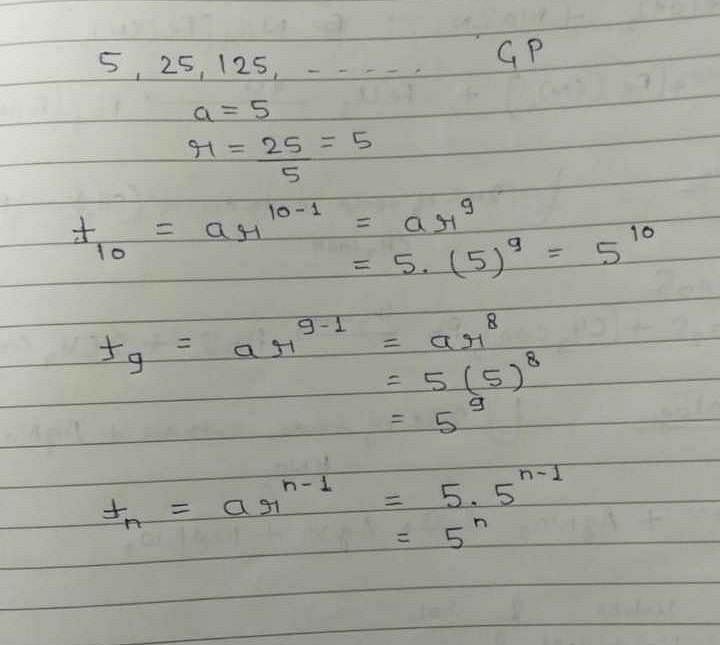 5, 25, 125, - - - - - GP
a = 5
r = 25/5 = 5
t₁₀ = ar¹⁰⁻¹ = ar⁹
= 5. (5)⁹ = 5¹⁰
t₉ = ar⁹⁻¹ = ar⁸
= 5 (5)⁸
= 5⁹
tₙ = arⁿ⁻¹ = 5. 5ⁿ⁻¹
= 5ⁿ